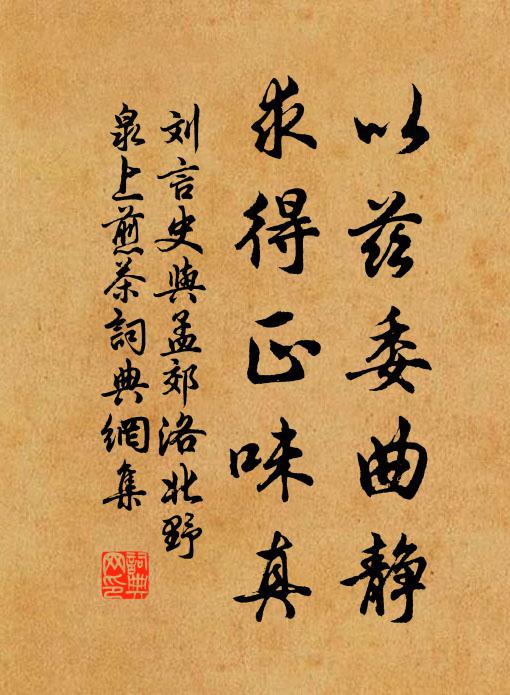 以兹委曲静
求得正味真
刘言史與孟郊洛北野
泉上煎茶詞典網集
詞典
网印